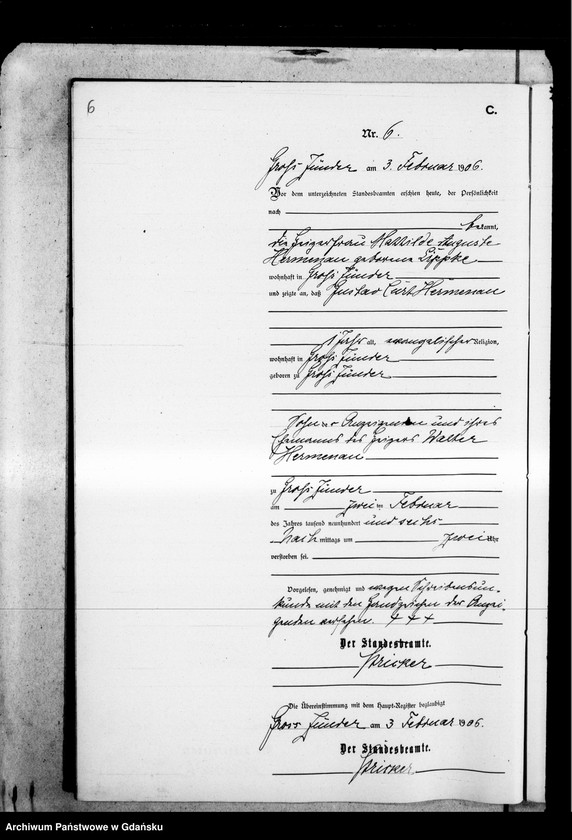 6
C.
Nr. 6.
Groß Zünder am 3. Februar 1906.
Vor dem unterzeichneten Standesbeamten erschien heute, der Persönlichkeit
nach
bekannt,
die Frau Mathilde Auguste
Hermenau geborene Lippke
wohnhaft in Groß Zünder
und zeigte an, daß Gustav Curt Hermenau
1 Jahr alt, evangelischer Religion,
wohnhaft in Groß Zünder
geboren zu Groß Zünder
Sohn der Anzeigenden und ihres
Ehemanns des Walter
Hermenau
zu Groß Zünder
am zwei ten Februar
des Jahres tausend neunhundert und sechs
Nachmittags um zwei Uhr
verstorben sei.
Vorgelesen, genehmigt und wegen Schreibensun-
kunde mit den Handzeichen der Anzei-
genden versehen. + + +
Der Standesbeamte.
Stricker
Die Übereinstimmung mit dem Haupt-Register beglaubigt
Gross Zünder am 3 Februar 1906.
Der Standesbeamte.
Stricker
Archiwum Państwowe w Gdańsku